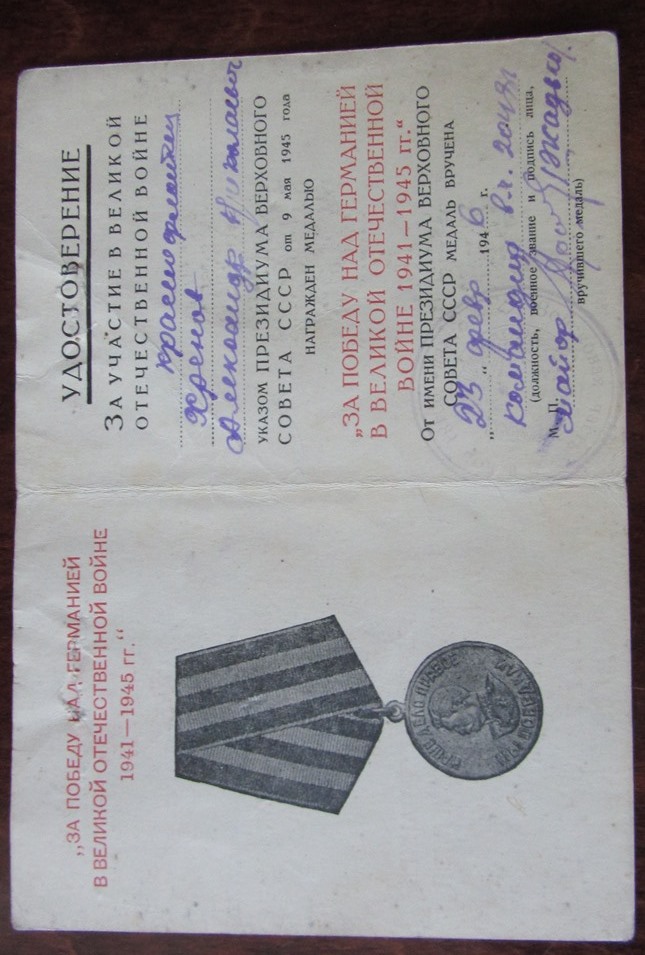 „ЗА ПОБЕДУ НАД ГЕРМАНИЕЙ
В ВЕЛИКОЙ ОТЕЧЕСТВЕННОЙ ВОЙНЕ
1941—1945 гг.“
НАШЕ ДЕЛО ПРАВОЕ
МЫ ПОБЕДИЛИ
УДОСТОВЕРЕНИЕ
ЗА УЧАСТИЕ В ВЕЛИКОЙ
ОТЕЧЕСТВЕННОЙ ВОЙНЕ
краснофлотец
Хренов
Александр Николаевич
УКАЗОМ ПРЕЗИДИУМА ВЕРХОВНОГО
СОВЕТА СССР от 9 мая 1945 года
НАГРАЖДЕН МЕДАЛЬЮ
„ЗА ПОБЕДУ НАД ГЕРМАНИЕЙ
В ВЕЛИКОЙ ОТЕЧЕСТВЕННОЙ
ВОЙНЕ 1941—1945 гг.“
ОТ ИМЕНИ ПРЕЗИДИУМА ВЕРХОВНОГО
СОВЕТА СССР МЕДАЛЬ ВРУЧЕНА
„23“ февр 1946 г.
командир в.ч.
(должность, военное звание и подпись лица,
М. П. майор
вручившего медаль)